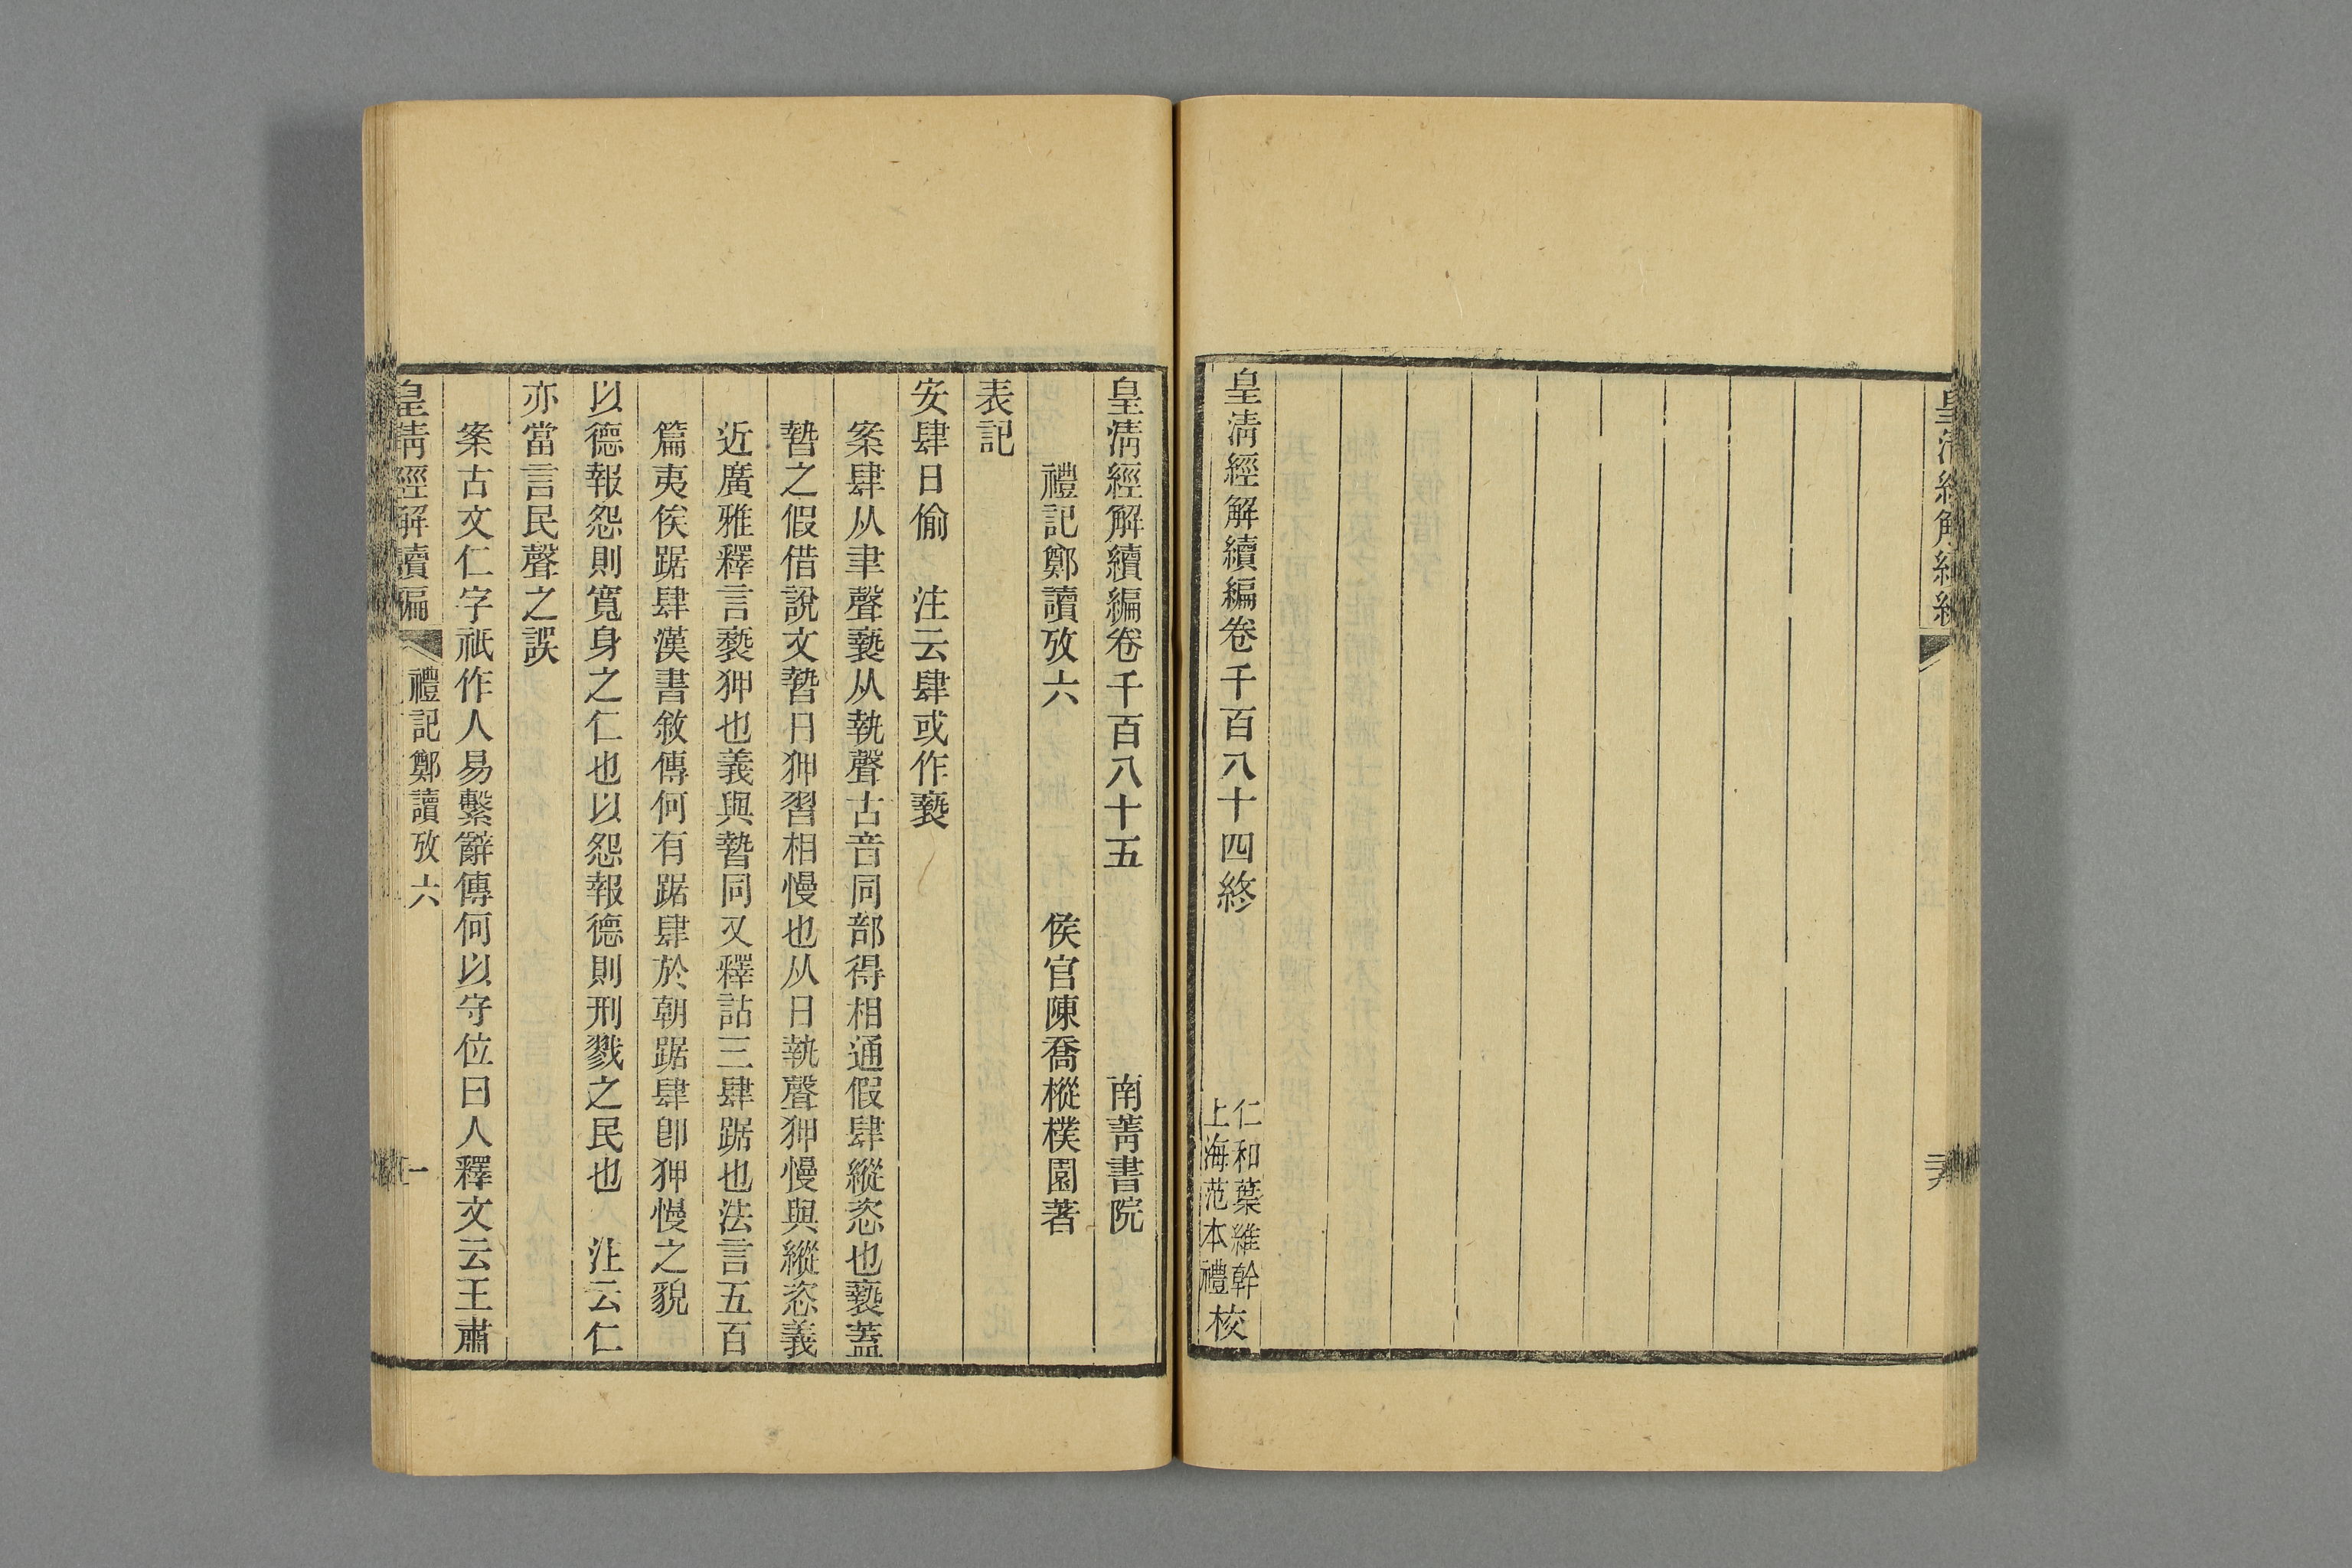 皇清經解續編卷千百八十四終
仁和葉維幹
上海范本禮
校
皇清經解續編卷千百八十五　南菁書院
禮記鄭讀攷六　侯官陳喬樅樸園著
表記
安肆日偷　注云肆或作褻
案肆从聿聲褻从執聲古音同部得相通假肆縱恣也褻蓋
暬之假借說文暬日狎習相慢也从日執聲狎慢與縱恣義
近廣雅釋言褻狎也義與暬同又釋詁三肆踞也法言五百
篇夷俟踞肆漢書敘傳何有踞肆於朝踞肆卽狎慢之貌
以德報怨則寬身之仁也以怨報德則刑戮之民也　注云仁
亦當言民聲之誤
案古文仁字祇作人易繫辭傳何以守位曰人釋文云王肅
皇清經解續編　禮記鄭讀攷六　一